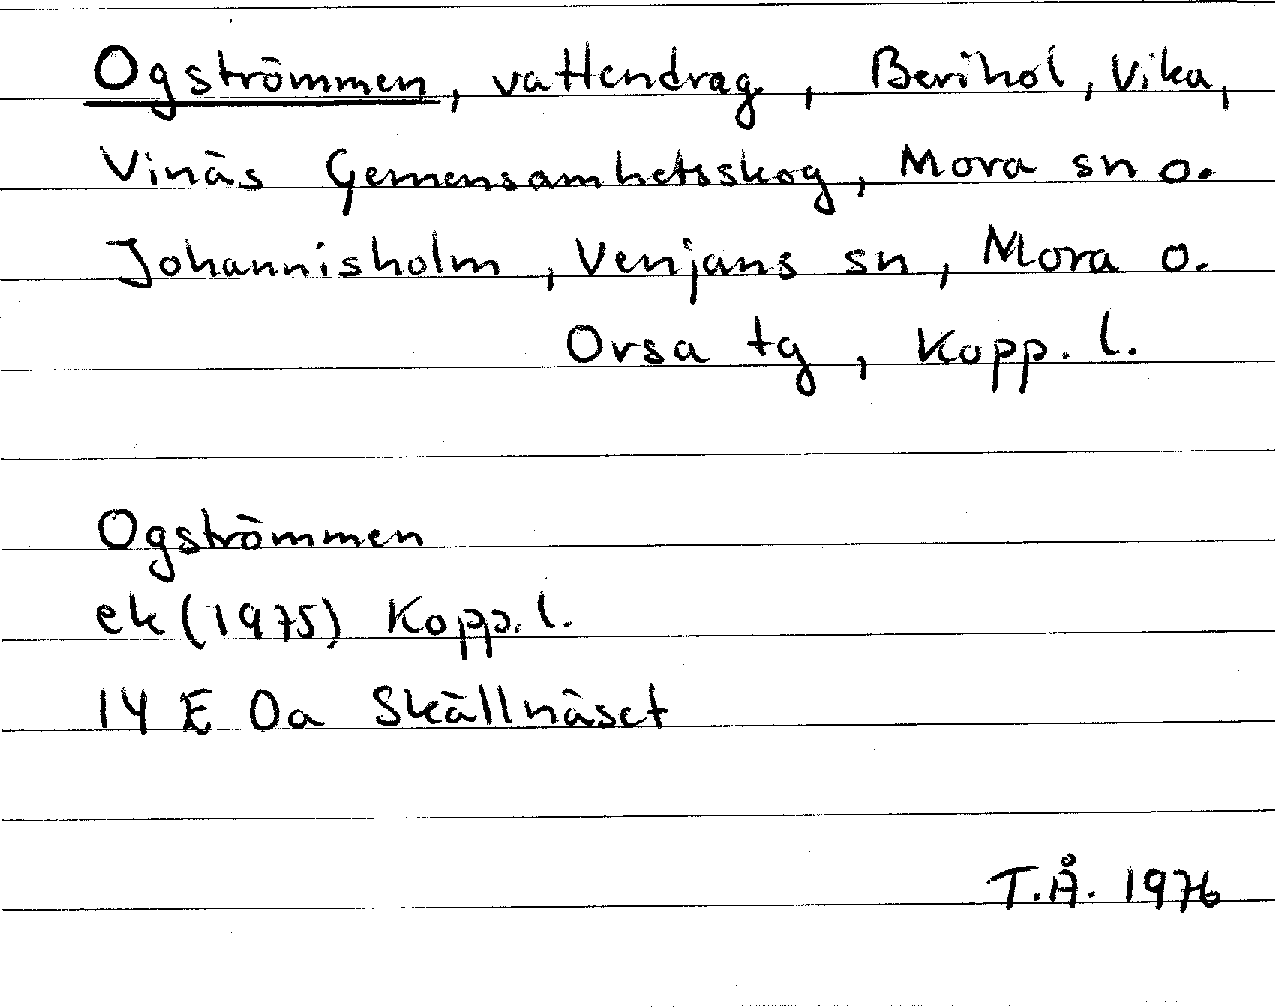 Ogströmmen, vattendrag, Berihol, Vika,
Vinäs Gemensamhetsskog, Mora sn o.
Johannisholm, Venjans sn, Mora o.
Orsa tg, Kopp. l.
Ogströmmen
ek (1975) Kopp. l.
14 E 0a Skällnäset
T.Å. 1976